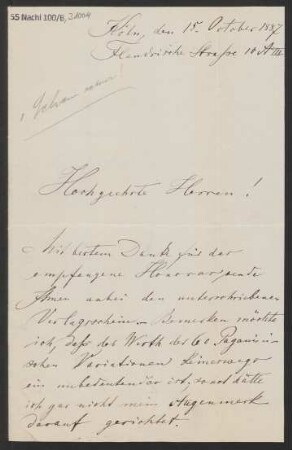 55 Nachl 100/B,
Köln, den 15. October 1887
Flandrische Strasse
Hochgeehrte Herren!
Mit bestem Dank für das
empfangene Honorar, sende
Ihnen anbei den unterschriebenen
Verlagsschein. – Bemerken möchte
ich, dass der Werth der 60 Paganini'
schen Variationen keineswegs
ein unbedeutender ist, sonst hätte
ich gar nicht mein Augenmerk
darauf gerichtet.